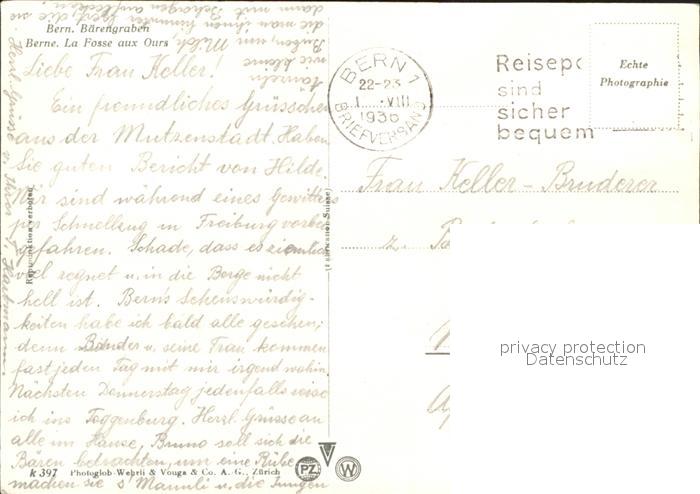 Bern. Bärengraben
Berne. La Fosse aux Ours
Liebe Frau Keller!
Ein freundliches Grüsschen
aus der Mutzenstadt. Haben
Sie guten Bericht von Hilde.
Wir sind während eines Gewitters
per Schnellzug in Freiburg vorbei
gefahren. Schade, dass es ziemlich
viel regnet u. in die Berge nicht
hell ist. Bern's Sehenswürdig-
keiten habe ich bald alle gesehen;
denn Bruder u. seine Frau kommen
fast jeden Tag mit mir irgend wohin.
Nächsten Donnerstag jedenfalls reise
ich ins Toggenburg. Herzl. Grüsse an
alle im Hause, Bruno soll sich die
Bären betrachten, um eine Rübe
machen sie s' Mannli u. die Jungen
wie kleine
Buben, um Milch,
die man ihnen hinunter
dann mit Behagen auflecken
Herzl. Grüsse v. Ihrer
Hartmann
Reproduktion verboten
k 397 Photoglob-Wehrli & Vouga & Co. A. G., Zürich
PZ
W
BERN 1
22-23
1. VIII
1936
BRIEFVERSAND
Reisepo
sind
sicher
bequem
Echte
Photographie
Frau Keller-Bruderer
z.
privacy protection
Datenschutz